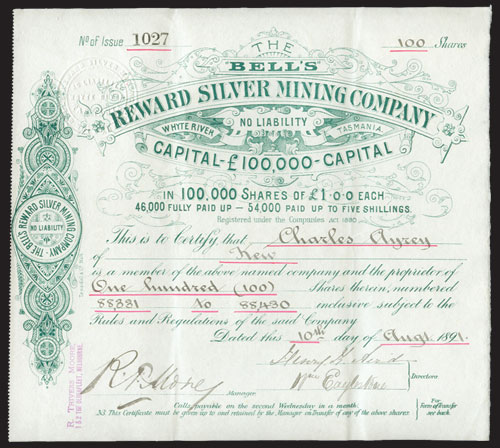 No of Issue 1027
100 Shares
THE
BELL'S
REWARD SILVER MINING COMPANY
NO LIABILITY
WHYTE RIVER TASMANIA
CAPITAL-£100,000-CAPITAL
IN 100,000 SHARES OF £1·0·0 EACH
46,000 FULLY PAID UP - 54,000 PAID UP TO FIVE SHILLINGS.
Registered under the Companies Act 1890
This is to Certify that Charles Ayrey
of Kew
is a member of the above named company and the proprietor of
One hundred (100) Shares therein, numbered
88381 to 88480 inclusive, subject to the
Rules and Regulations of the said Company
Dated this 10th day of Augt. 1891.
Directors
Manager
Calls payable on the second Wednesday in a month.
N.B. This Certificate must be given up to and retained by the Manager on Transfer of any of the above shares
For
Form of Transfer
see back.
THE BELL'S REWARD SILVER MINING COMPANY
NO LIABILITY